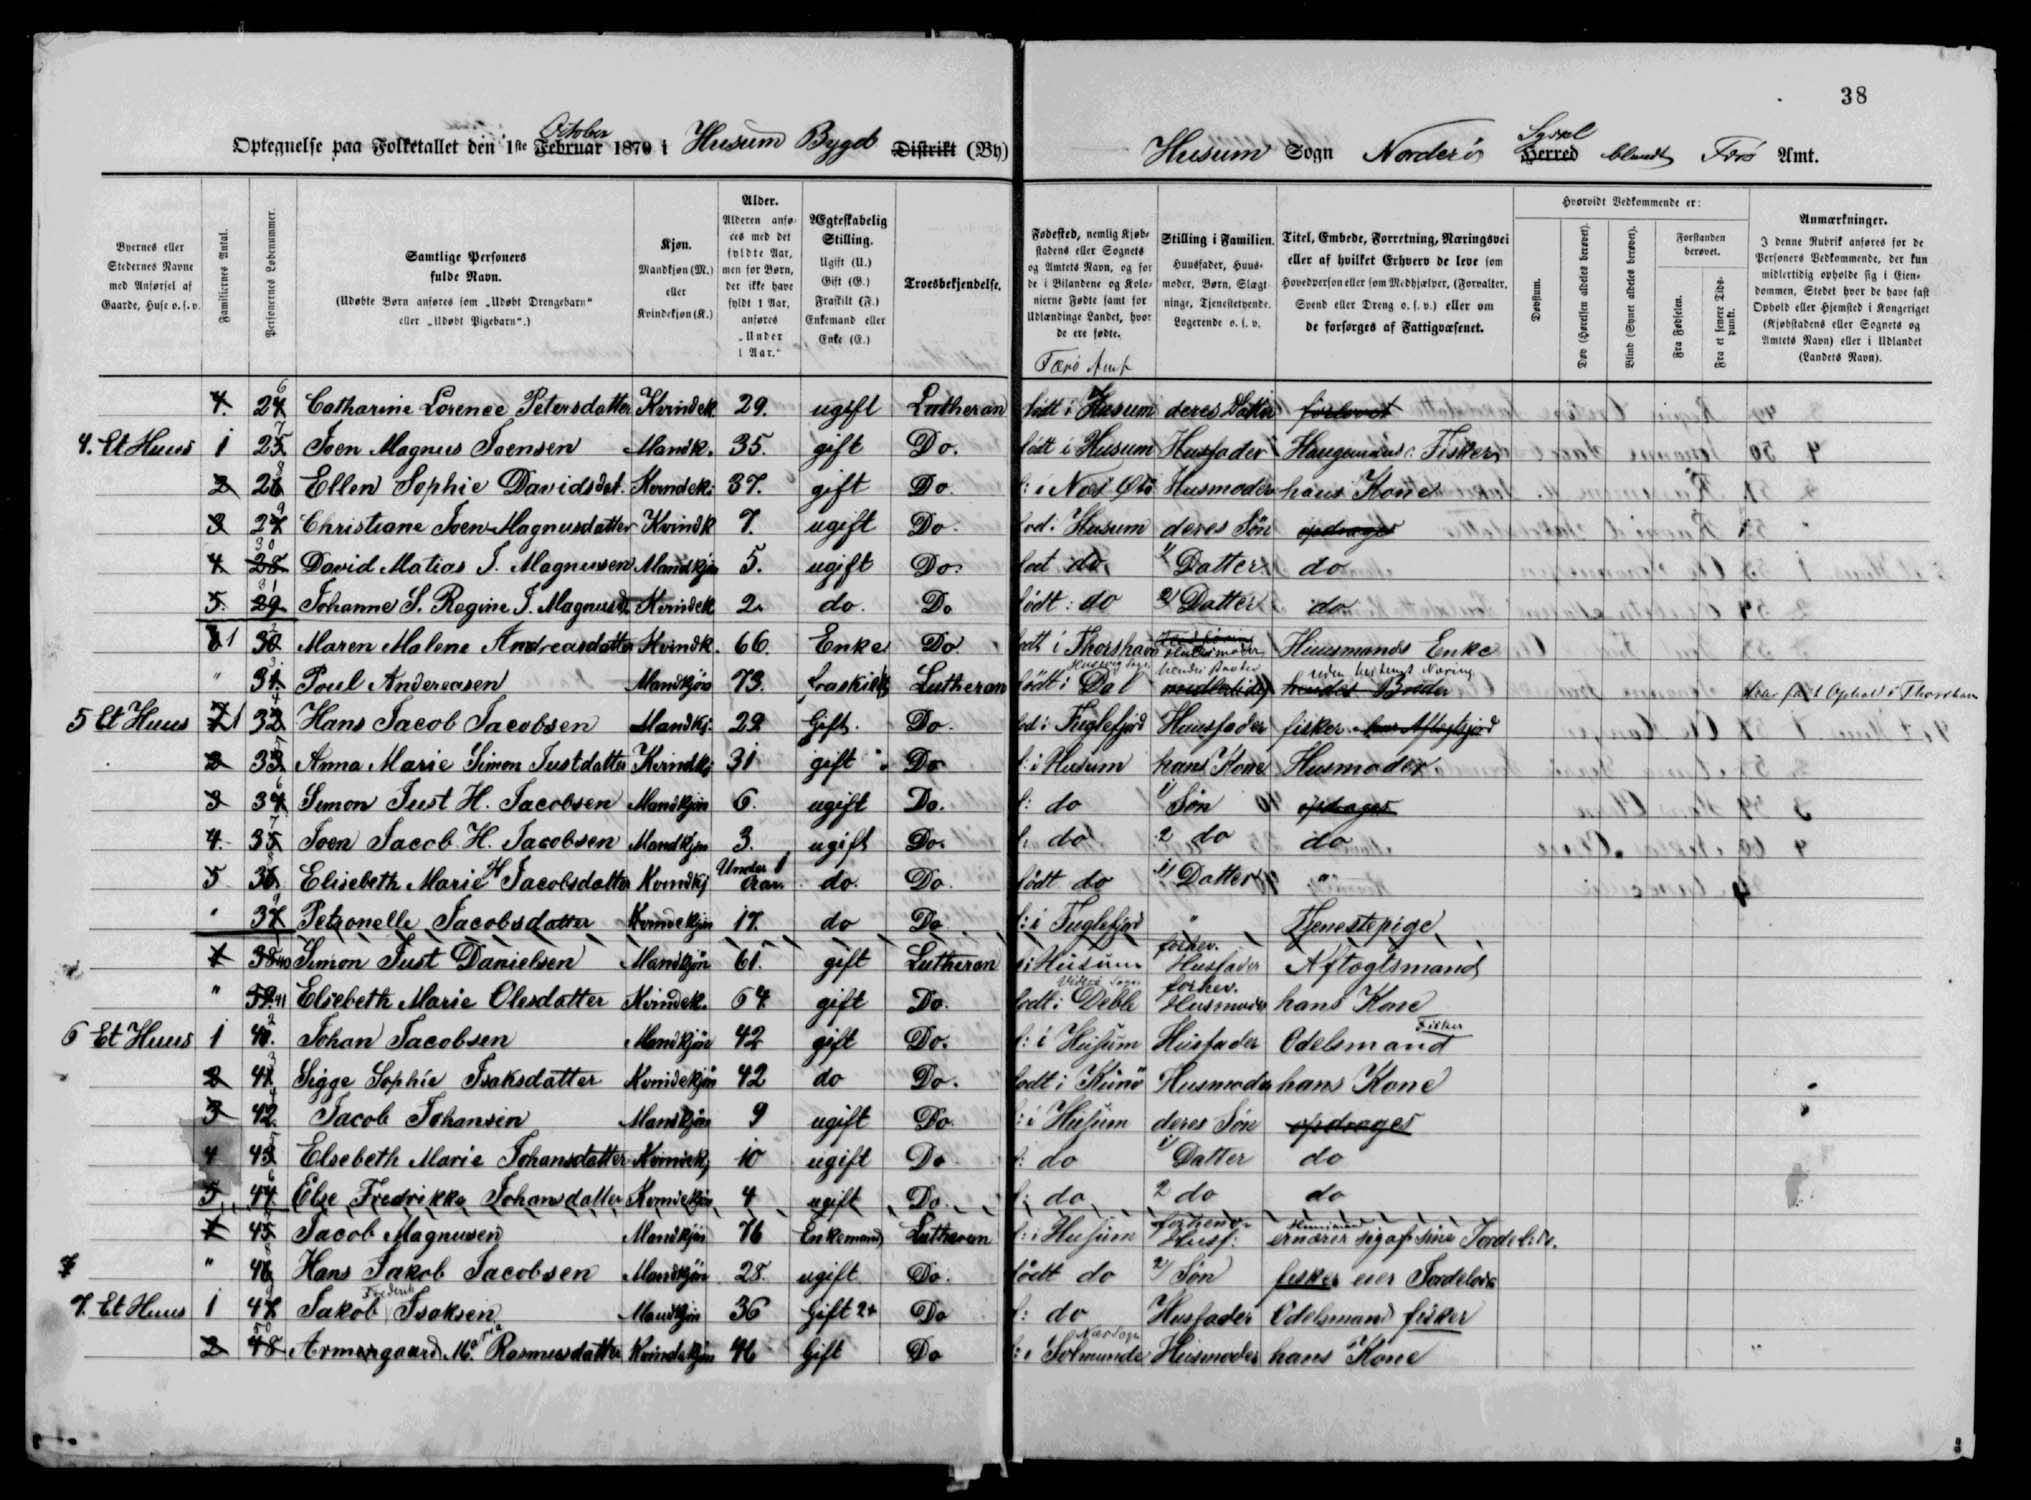 38
Optegnelse paa Folketallet den 1ste Februar October 1870 i Husum Bygd Distrikt (By) Husum Sogn Norderö Herred Syssel blandt Færö Amt.
Byernes eller Stedernes Navne med Anførsel af Gaarde, Huse o. s. v.
Familiernes Antal.
Personernes Løbenummer.
Samtlige Personers fulde Navn. (Udøbte Børn anføres som „Udøbt Drengebarn“ eller „Udøbt Pigebarn“.)
Kjøn. Mandkjøn (M.) eller Kvindekjøn (K.)
Alder. Alderen anføres med det fyldte Aar, men for Børn, der ikke have fyldt 1 Aar, anføres „Under 1 Aar.“
Ægteskabelig Stilling. Ugift (U.) Gift (G.) Fraskilt (F.) Enkemand eller Enke (E.)
Troesbekjendelse.
Fødested, nemlig Kjøbstadens eller Sognets og Amtets Navn, og for de i Bilandene og Kolonierne Fødte samt for Udlændinge Landet, hvor de ere fødte.
Færö Amt
Stilling i Familien. Huusfader, Huusmoder, Børn, Slægtninge, Tjenestetyende. Logerende o. s. v.
Titel, Embede, Forretning, Næringsvei eller af hvilket Erhverv de leve som Hovedperson eller som Medhjælper, (Forvalter, Svend eller Dreng o. s. v.) eller om de forsørges af Fattigvæsenet.
Hvorvidt Vedkommende er:
Døvstum.
Døv (Hørelsen aldeles berøvet).
Blind (Synet aldeles berøvet).
Forstanden berøvet.
Fra Fødselen.
Fra et senere Tidspunkt.
Anmærkninger. I denne Rubrik anføres for de Personers Vedkommende, der kun midlertidig opholde sig i Eiendommen, Stedet hvor de have fast Ophold eller Hjemsted i Kongeriget (Kjøbstadens eller Sognets og Amtets Navn) eller i Udlandet (Landets Navn).
4. 24 6 Catharine Lorence Petersdatter Kvindek. 29. ugift Lutheran född i Husum deres Datter forlovet
4. Et Huus 1 25 7 Joen Magnus Joensen Mandk. 35. gift Do. född i Husum Husfader Fisker
2 26 8 Ellen Sophie Davidsdat. Kvindek: 37. gift Do. Husmoder hans Kone
3 27 9 Christiane Joen-Magnusdatter Kvindk 7. ugift Do. Husum deres Sön opdrages
4 28 30 David Matias J. Magnusen Mandkjön 5. ugift Do. do 1/ Datter do
5. 29 31 Johanne S. Regine J. Magnusd. Kvindek 2. do. Do född: do 2/ Datter do
6 1 30 2 Maren Malene Andreasdatter Kvindk. 66. Enke Do född i Thorshavn Huusmands Enke
" 31. 3 Poul Andreasen Mandkjön 73. fraskilt Lutheran född i Dal hendes Broder uden bestemt Næring har fast Ophold i Thorshavn
5 Et Huus 1 32 4 Hans Jacob Jacobsen Mandkj. 29 Gift. Do. Fuglefjord Huusfader fisker
2 33 5 Anna Marie Simon Justdatter Kvindkj 31 gift Do f: i Husum hans Kone Husmoder
3 34 6 Simon Just H. Jacobsen Mandkjön 6. ugift Do. f: do 1/ Sön opdrages
4. 35 7 Joen Jacob H. Jacobsen Mandkjön 3. ugift Do. f: do 2 do do
5 36 8 Elisebeth Marie H Jacobsdatter Kvindkj Under 1 Aar. do. Do. född do 1/ Datter "
" 37 9 Petronelle Jacobsdatter Kvindekjön 17. do Do f: i Fuglefjord " Tjenestepige
1 38 40 Simon Just Danielsen Mandkjön 61. gift Lutheran f: i Husum forhev. Husfader Aftægtsmand
" 39 41 Elsebeth Marie Olesdatter Kvindek. 64 gift Do. född i Deble forhev. Husmoder hans Kone
6 Et Huus 1 40. 2 Johan Jacobsen Mandkjön 42 gift Do. f: i Husum Husfader Odelsmand Fisker
2 41 3 Sigge Sophie Isaksdatter Kvindekjön 42 do Do. född i Kunö Husmoder hans Kone
3 42 4 Jacob Johansen Mandkjön 9 ugift Do. f: i Husum deres Sön opdrages
4 43 5 Elsebeth Marie Johansdatter Kvindekj 10 ugift Do f: do 1/ Datter do
5 44 6 Else Fredrikke Johansdatter Kvindekjön 4 ugift Do. f: do 2 do do
1 45 7 Jacob Magnusen Mandkjön 76 Enkemand Lutheran f: i Husum Husf: ernærer sig af sine Jordel: dv.
" 46 8 Hans Jakob Jacobsen Mandkjön 28. ugift Do. född do 2/ Sön fisker eier Jordelod
7. Et Huus 1 47 9 Jakob Frederik Isaksen Mandkjön 36 Gift 2+ Do f: do Husfader Odelsmand fisker
2 48 50 Armengaard Ma ria Rasmusdatter Kvindekjön 46 Gift Do Solmunde Husmoder hans Kone